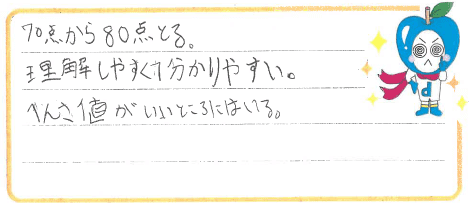 70点から80点とる。
理解しやすく分かりやすい。
へんさ値がいいところにはいる。
d